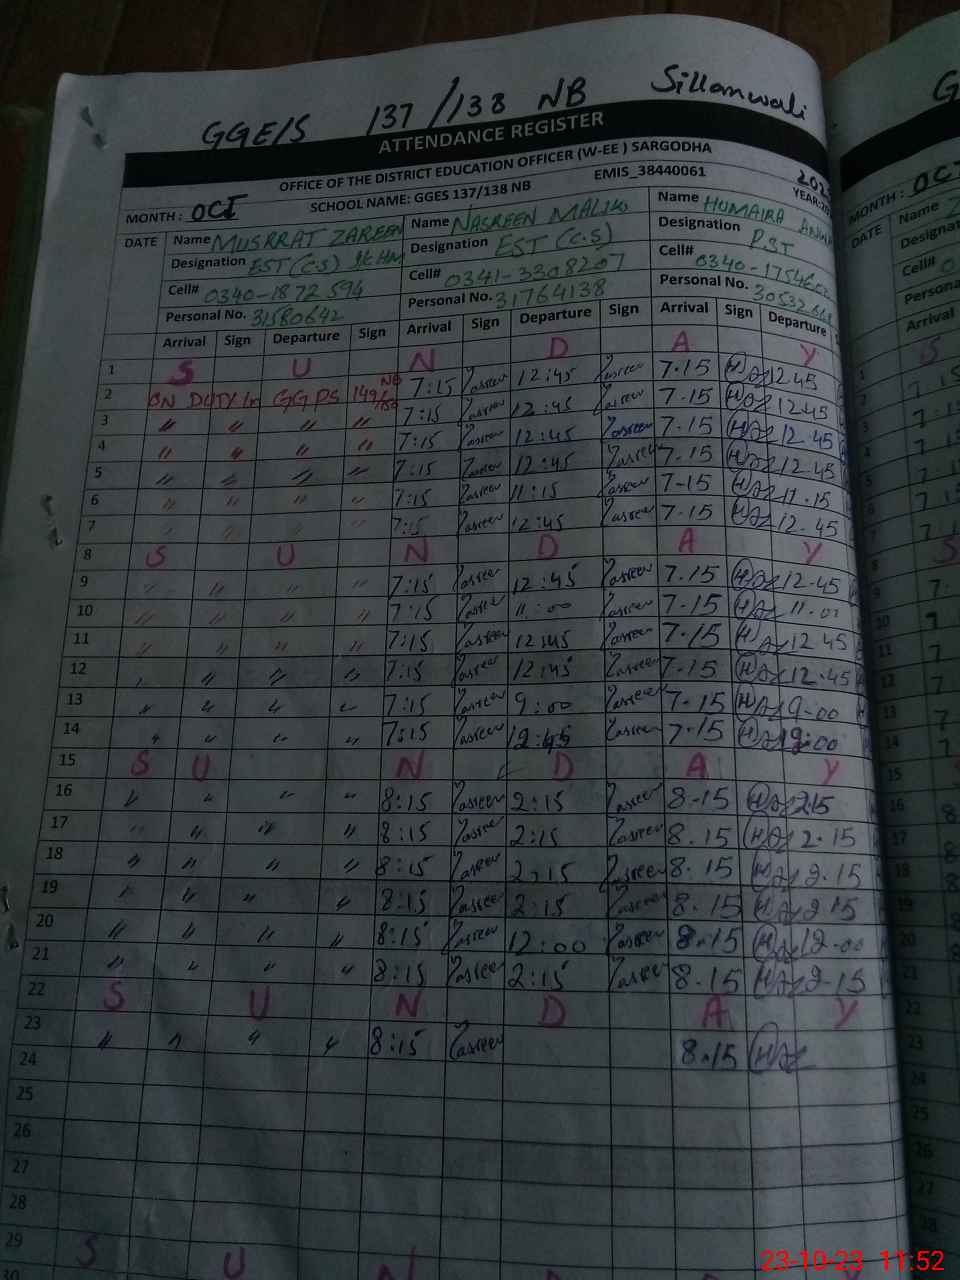 GGE/S 137/138 NB Sillanwali
ATTENDANCE REGISTER
OFFICE OF THE DISTRICT EDUCATION OFFICER (W-EE ) SARGODHA
MONTH : OCT SCHOOL NAME: GGES 137/138 NB EMIS_38440061 YEAR:
DATE Name MUSRRAT ZAREEN Name NASREEN MALIK Name HUMAIRA
Designation EST (C.S) Designation EST (C.S) Designation P.S.T
Cell# 0340-1872594 Cell# 0341-3308207 Cell#
Personal No. 31580642 Personal No. 31764138 Personal No.
Arrival Sign Departure Sign Arrival Sign Departure Sign Arrival Sign Departure
1 S U N D A Y
2 ON DUTY In GGPS 149/150 NB 7:15 Nasreen 12:45 Nasreen 7.15 12.45
3 " " " " 7:15 Nasreen 12:45 Nasreen 7.15 12.45
4 " " " " 7:15 Nasreen 12:45 Nasreen 7.15 12.45
5 " " " " 7:15 Nasreen 12:45 Nasreen 7.15 12.45
6 " " " " 7:15 Nasreen 11:15 Nasreen 7-15 11.15
7 " " " " 7:15 Nasreen 12:45 Nasreen 7.15 12.45
8 S U N D A Y
9 " " " " 7:15 Nasreen 12:45 Nasreen 7.15 12.45
10 " " " " 7:15 Nasreen 11:00 Nasreen 7.15 11.00
11 " " " " 7:15 Nasreen 12:45 Nasreen 7.15 12.45
12 " " " " 7:15 Nasreen 12:45 Nasreen 7.15 12.45
13 " " " " 7:15 Nasreen 9:00 Nasreen 7.15 9-00
14 " " " " 7:15 Nasreen 12:45 Nasreen 7.15
15 S U N D A Y
16 " " " " 8:15 Nasreen 2:15 Nasreen 8.15 2.15
17 " " " " 8:15 Nasreen 2:15 Nasreen 8.15 2.15
18 " " " " 8:15 Nasreen 2:15 Nasreen 8.15 2.15
19 " " " " 8:15 Nasreen 2:15 Nasreen 8.15 2.15
20 " " " " 8:15 Nasreen 12:00 Nasreen 8.15 12.00
21 " " " " 8:15 Nasreen 2:15 Nasreen 8.15 2.15
22 S U N D A Y
23 " " " " 8:15 Nasreen 8.15
24
25
26
27
28
29 S U N
30
23-10-23 11:52